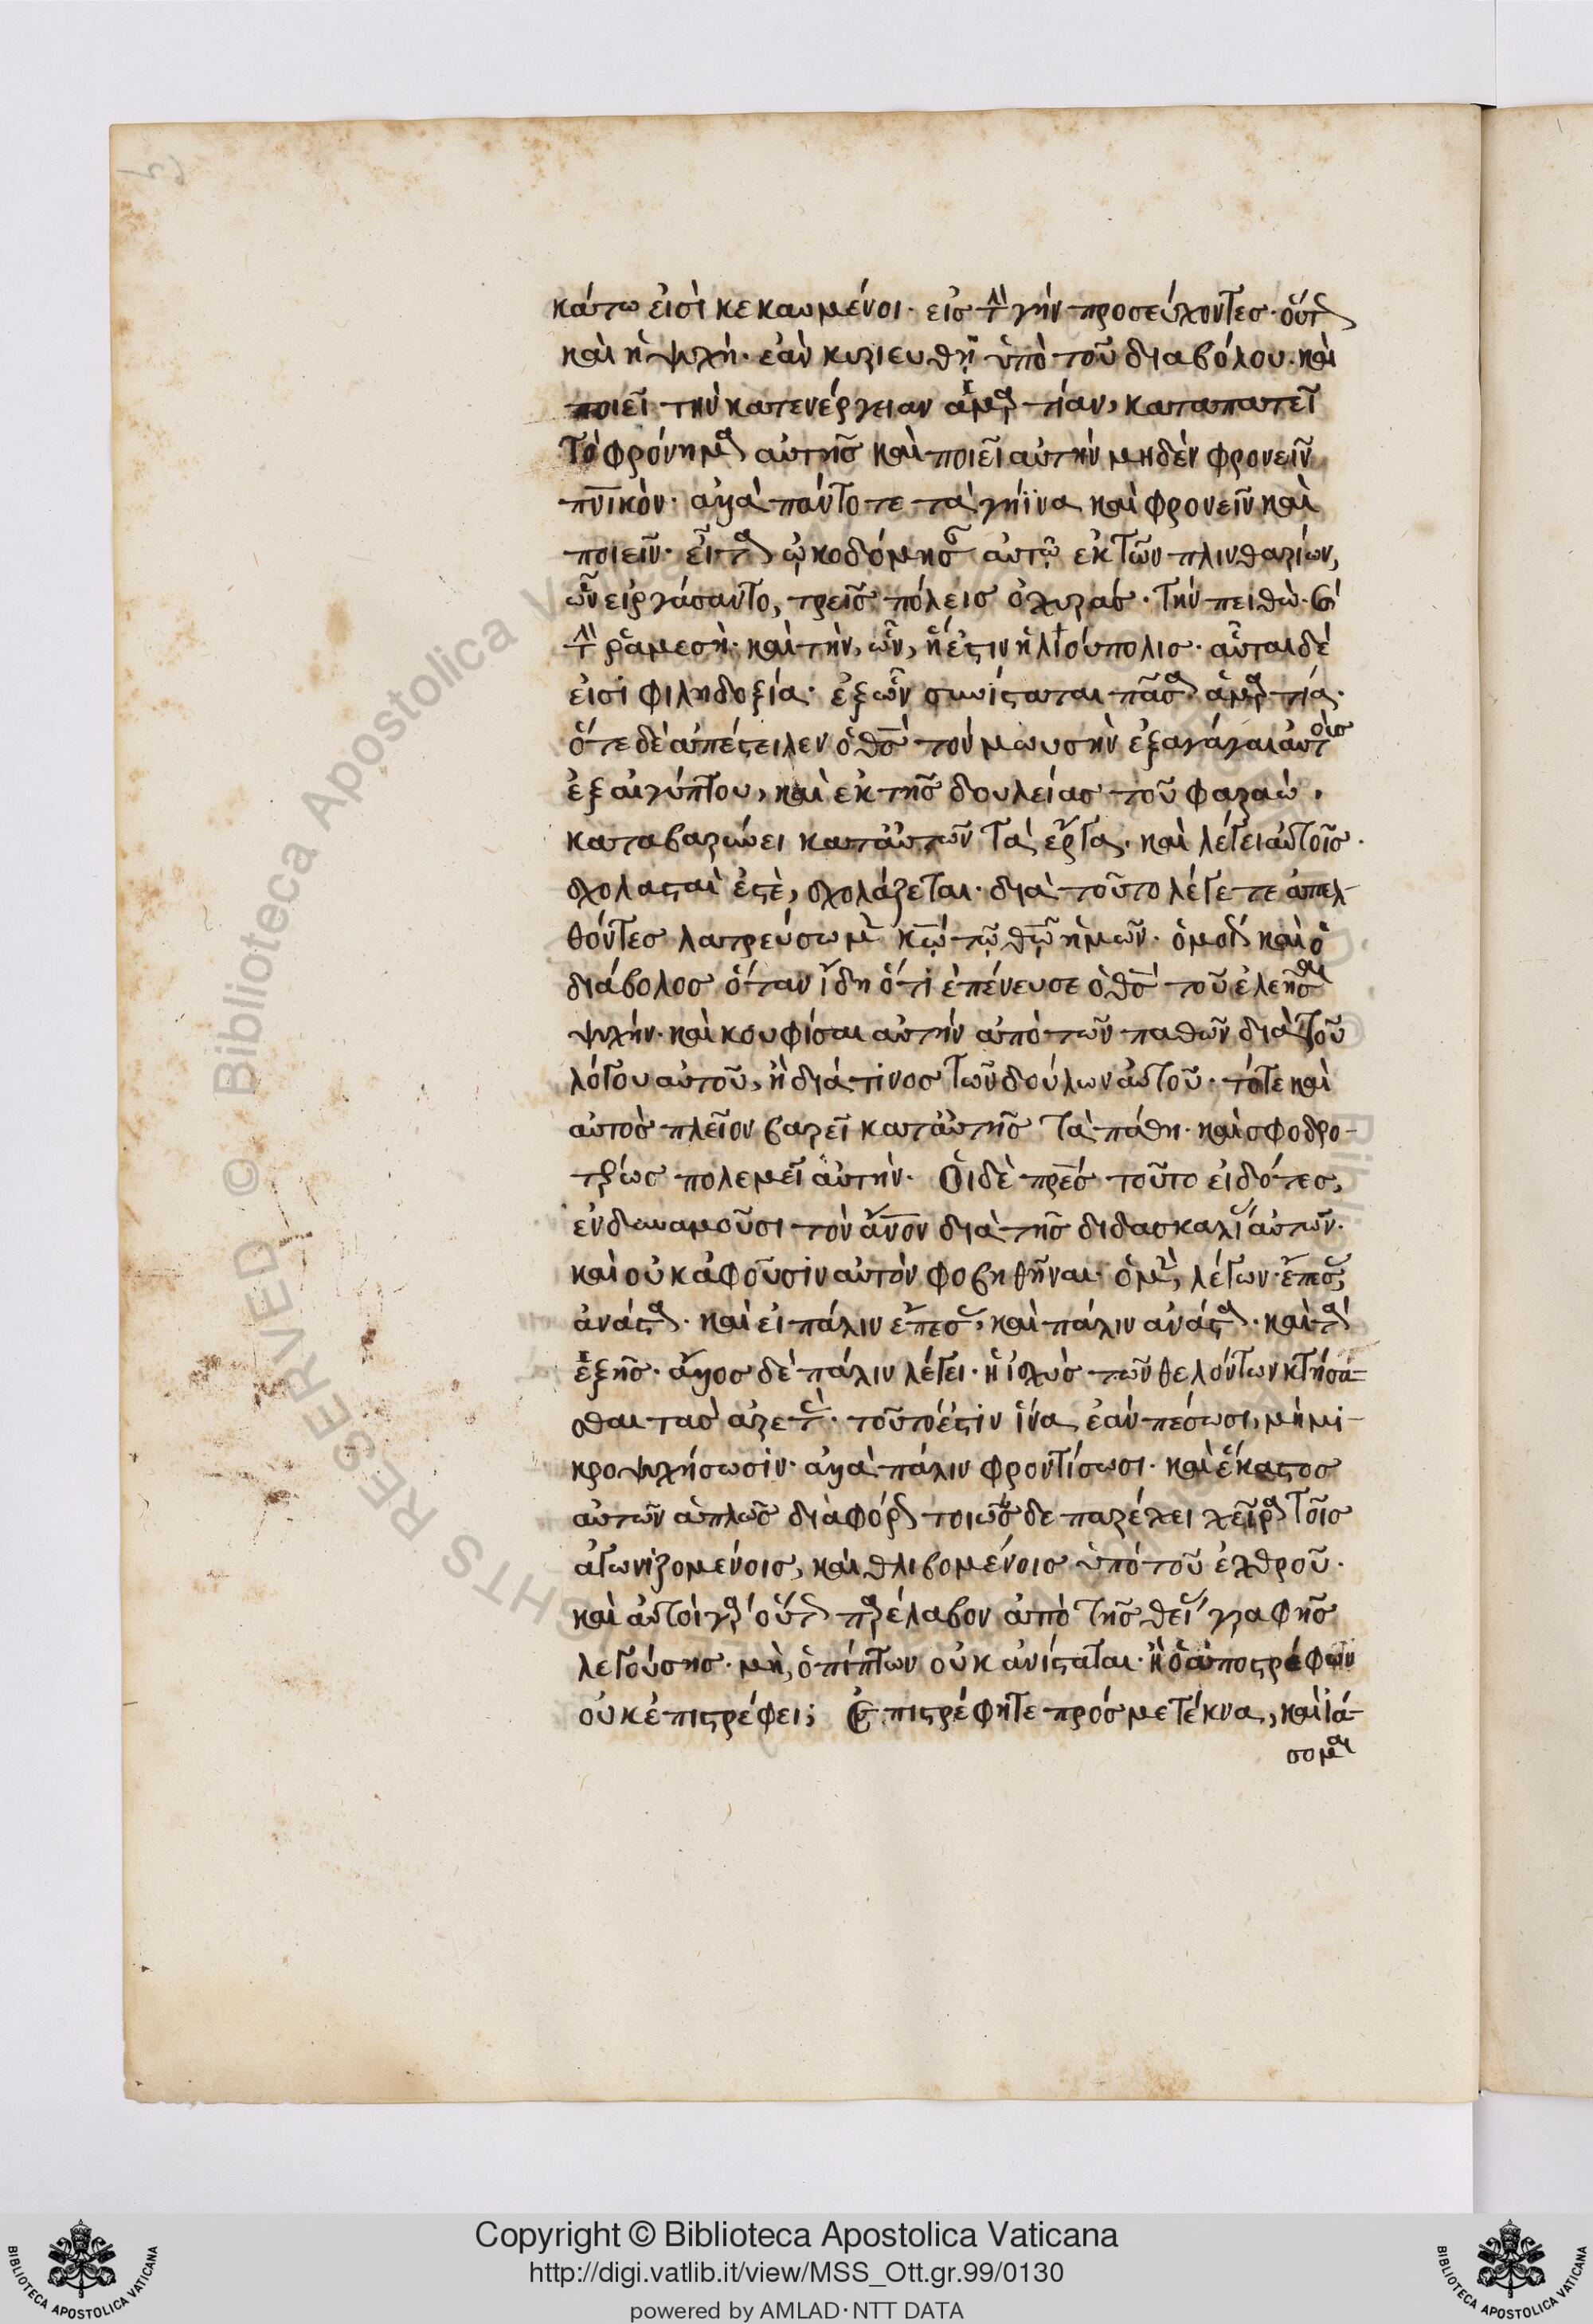 κάτω εἰσὶ κεκαυμένοι. εἰς τὴν γῆν προσεύχοντες. οὕτως
καὶ ἡ ψυχή. ἐὰν κυριευθῇ ὑπὸ τοῦ διαβόλου. καὶ
ποιεῖ τὴν κατενέργειαν ἁμαρτίαν, καταπατεῖ
τὸ φρόνημα αὐτῆς καὶ ποιεῖ αὐτὴν μηδὲν φρονεῖν
πνικὸν. ἀλλὰ πάντοτε τὰ γήϊνα καὶ φρονεῖν καὶ
ποιεῖν. εἶτα ᾠκοδόμησαν αὐτῷ ἐκ τῶν πλινθαρίων,
ὧν εἰργάσαντο, τρεῖς πόλεις ὀχυράς. τὴν πειθώ. καὶ
τὴν ῥαμεσὴ. καὶ τὴν, ὧν, ἥ ἐστιν ἡλιούπολις. αὗται δέ
εἰσι φιληδοξία. ἐξ ὧν συνίσταται πᾶσα ἁμαρτία.
ὅτε δὲ ἀπέστειλεν ὁ θς τὸν μωυσὴν ἐξαγάγαι αὐτοὺς
ἐξ αἰγύπτου, καὶ ἐκ τῆς δουλείας τοῦ φαραώ.
καταβαρύνει κατ' αὐτῶν τὰ ἔργα. καὶ λέγει αὐτοῖς.
σχολασταὶ ἐστὲ, σχολάζεται. διὰ τοῦτο λέγετε ἀπελ-
θόντες λατρεύσωμεν κῳ τῷ θῷ ἡμῶν. ὁμοίως καὶ ὁ
διάβολος ὅταν ἴδη ὅτι ἐπένευσε ὁ θς τοῦ ἐλεῆσαι
ψυχήν. καὶ κουφίσαι αὐτὴν ἀπὸ τῶν παθῶν διὰ τοῦ
λόγου αὐτοῦ, ἢ διά τινος τῶν δούλων αὐτοῦ. τότε καὶ
αὐτὸς πλεῖον βαρεῖ κατ' αὐτῆς τὰ πάθη. καὶ σφοδρο-
τέρως πολεμεῖ αὐτήν. Οἱ δὲ πρες τοῦτο εἰδότες,
ἐνδυναμοῦσι τὸν ἄνον διὰ τῆς διδασκαλίας αὐτῶν.
καὶ οὐκ ἀφοῦσιν αὐτὸν φοβηθῆναι. ὁ μὲν, λέγων. ἔπεσες,
ἀνάστα. καὶ εἰ πάλιν ἔπεσες, καὶ πάλιν ἀνάστα. καὶ τὰ
ἑξῆς. ἄλλος δὲ πάλιν λέγει. ἡ ἰσχὺς τῶν θελόντων κτήσα-
σθαι τὰς ἀρετὰς. τοῦτό ἐστιν ἵνα ἐὰν πέσωσι, μὴ μι-
κροψυχήσωσιν. ἀλλὰ πάλιν φροντίσωσι. καὶ ἕκαστος
αὐτῶν ἁπλῶς διαφόρως τοιῶσδε παρέχει χεῖρα τοῖς
ἀγωνιζομένοις, καὶ θλιβομένοις ὑπὸ τοῦ ἐχθροῦ.
καὶ αὐτοὶ γὰρ οὕτως παρέλαβον ἀπὸ τῆς θείας γραφῆς
λεγούσης. μὴ, ὁ πίπτων οὐκ ἀνίσταται. ἢ ὁ ἀποστρέφων
οὐκ ἐπιστρέφει; Ἐπιστρέφητε πρός με τέκνα, καὶ ἰά-
σομαι
Copyright © Biblioteca Apostolica Vaticana
http://digi.vatlib.it/view/MSS_Ott.gr.99/0130
powered by AMLAD·NTT DATA
BIBLIOTECA APOSTOLICA VATICANA
BIBLIOTECA APOSTOLICA VATICANA